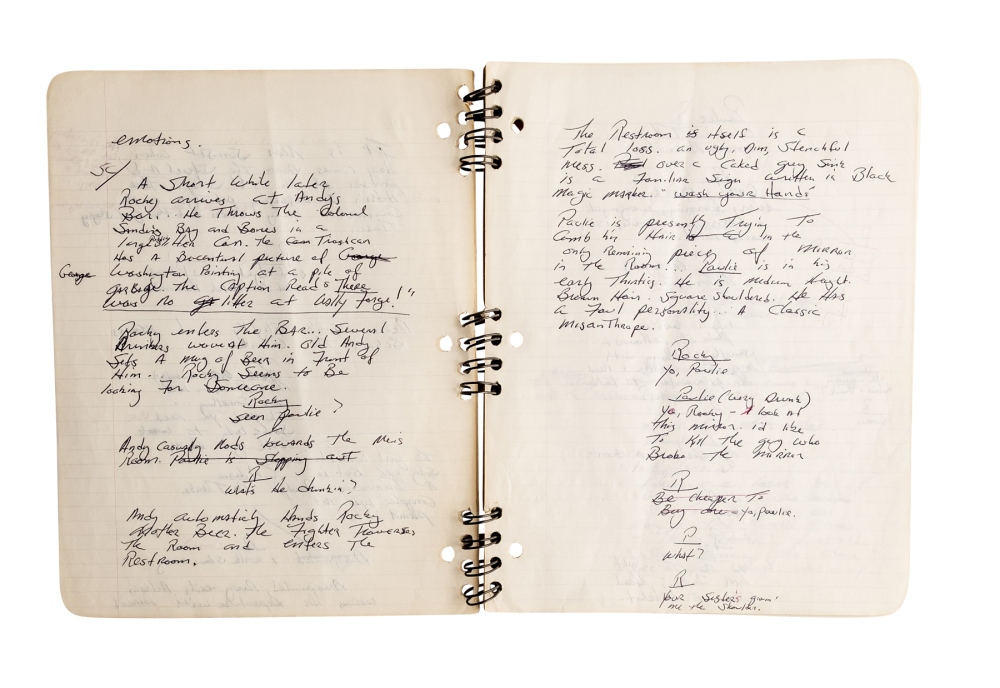 emotions.
SC/
A Short While later
Rocky arrives at Andy's
Bar... He Throws The Colonial
Bag and Bones in a
Can. The Trashcan
Has A picture of George
George Washington Pointing at a pile of
garbage. The Caption Reads "There
was no litter at Vally forge!"
Rocky enters The BAR... Several
Drunkers Him. Old Andy
Sets A mug of Beer in Front of
Him. Rocky Seems to Be
looking For Someone.
Rocky
Seen Paulie?
Andy Casualy Nods Towards The Men's
Room. Paulie is Stepping out
R
What's He drinkin?
Andy automaticly Hands Rocky
Another Beer. The Fighter Traverses
The Room and enters The
Restroom.
The Restroom itself is a
Total loss. an ugly, Dim, Stenchful
mess. over a Caked grey Sink
is a Familiar Sign written in Black
Magic marker. "wash your Hands"
Paulie is presently Trying To
Comb his Hair in the
only Remaining piece of MIRROR
in The Room. Paulie is in his
early Thirties. He is medium height.
Brown Hair. Square Shouldered. He Has
a Foul personality... A Classic
Misanthrope.
Rocky
Yo, Paulie
Paulie (Very Drunk)
Yo, Rocky - look at
this mirror. i'd like
To Kill The guy who
Broke The Mirror
R
Be cheaper To
Buy one - Yo, Paulie.
P
What?
R
Your Sister's givin'
me the Shoulder.